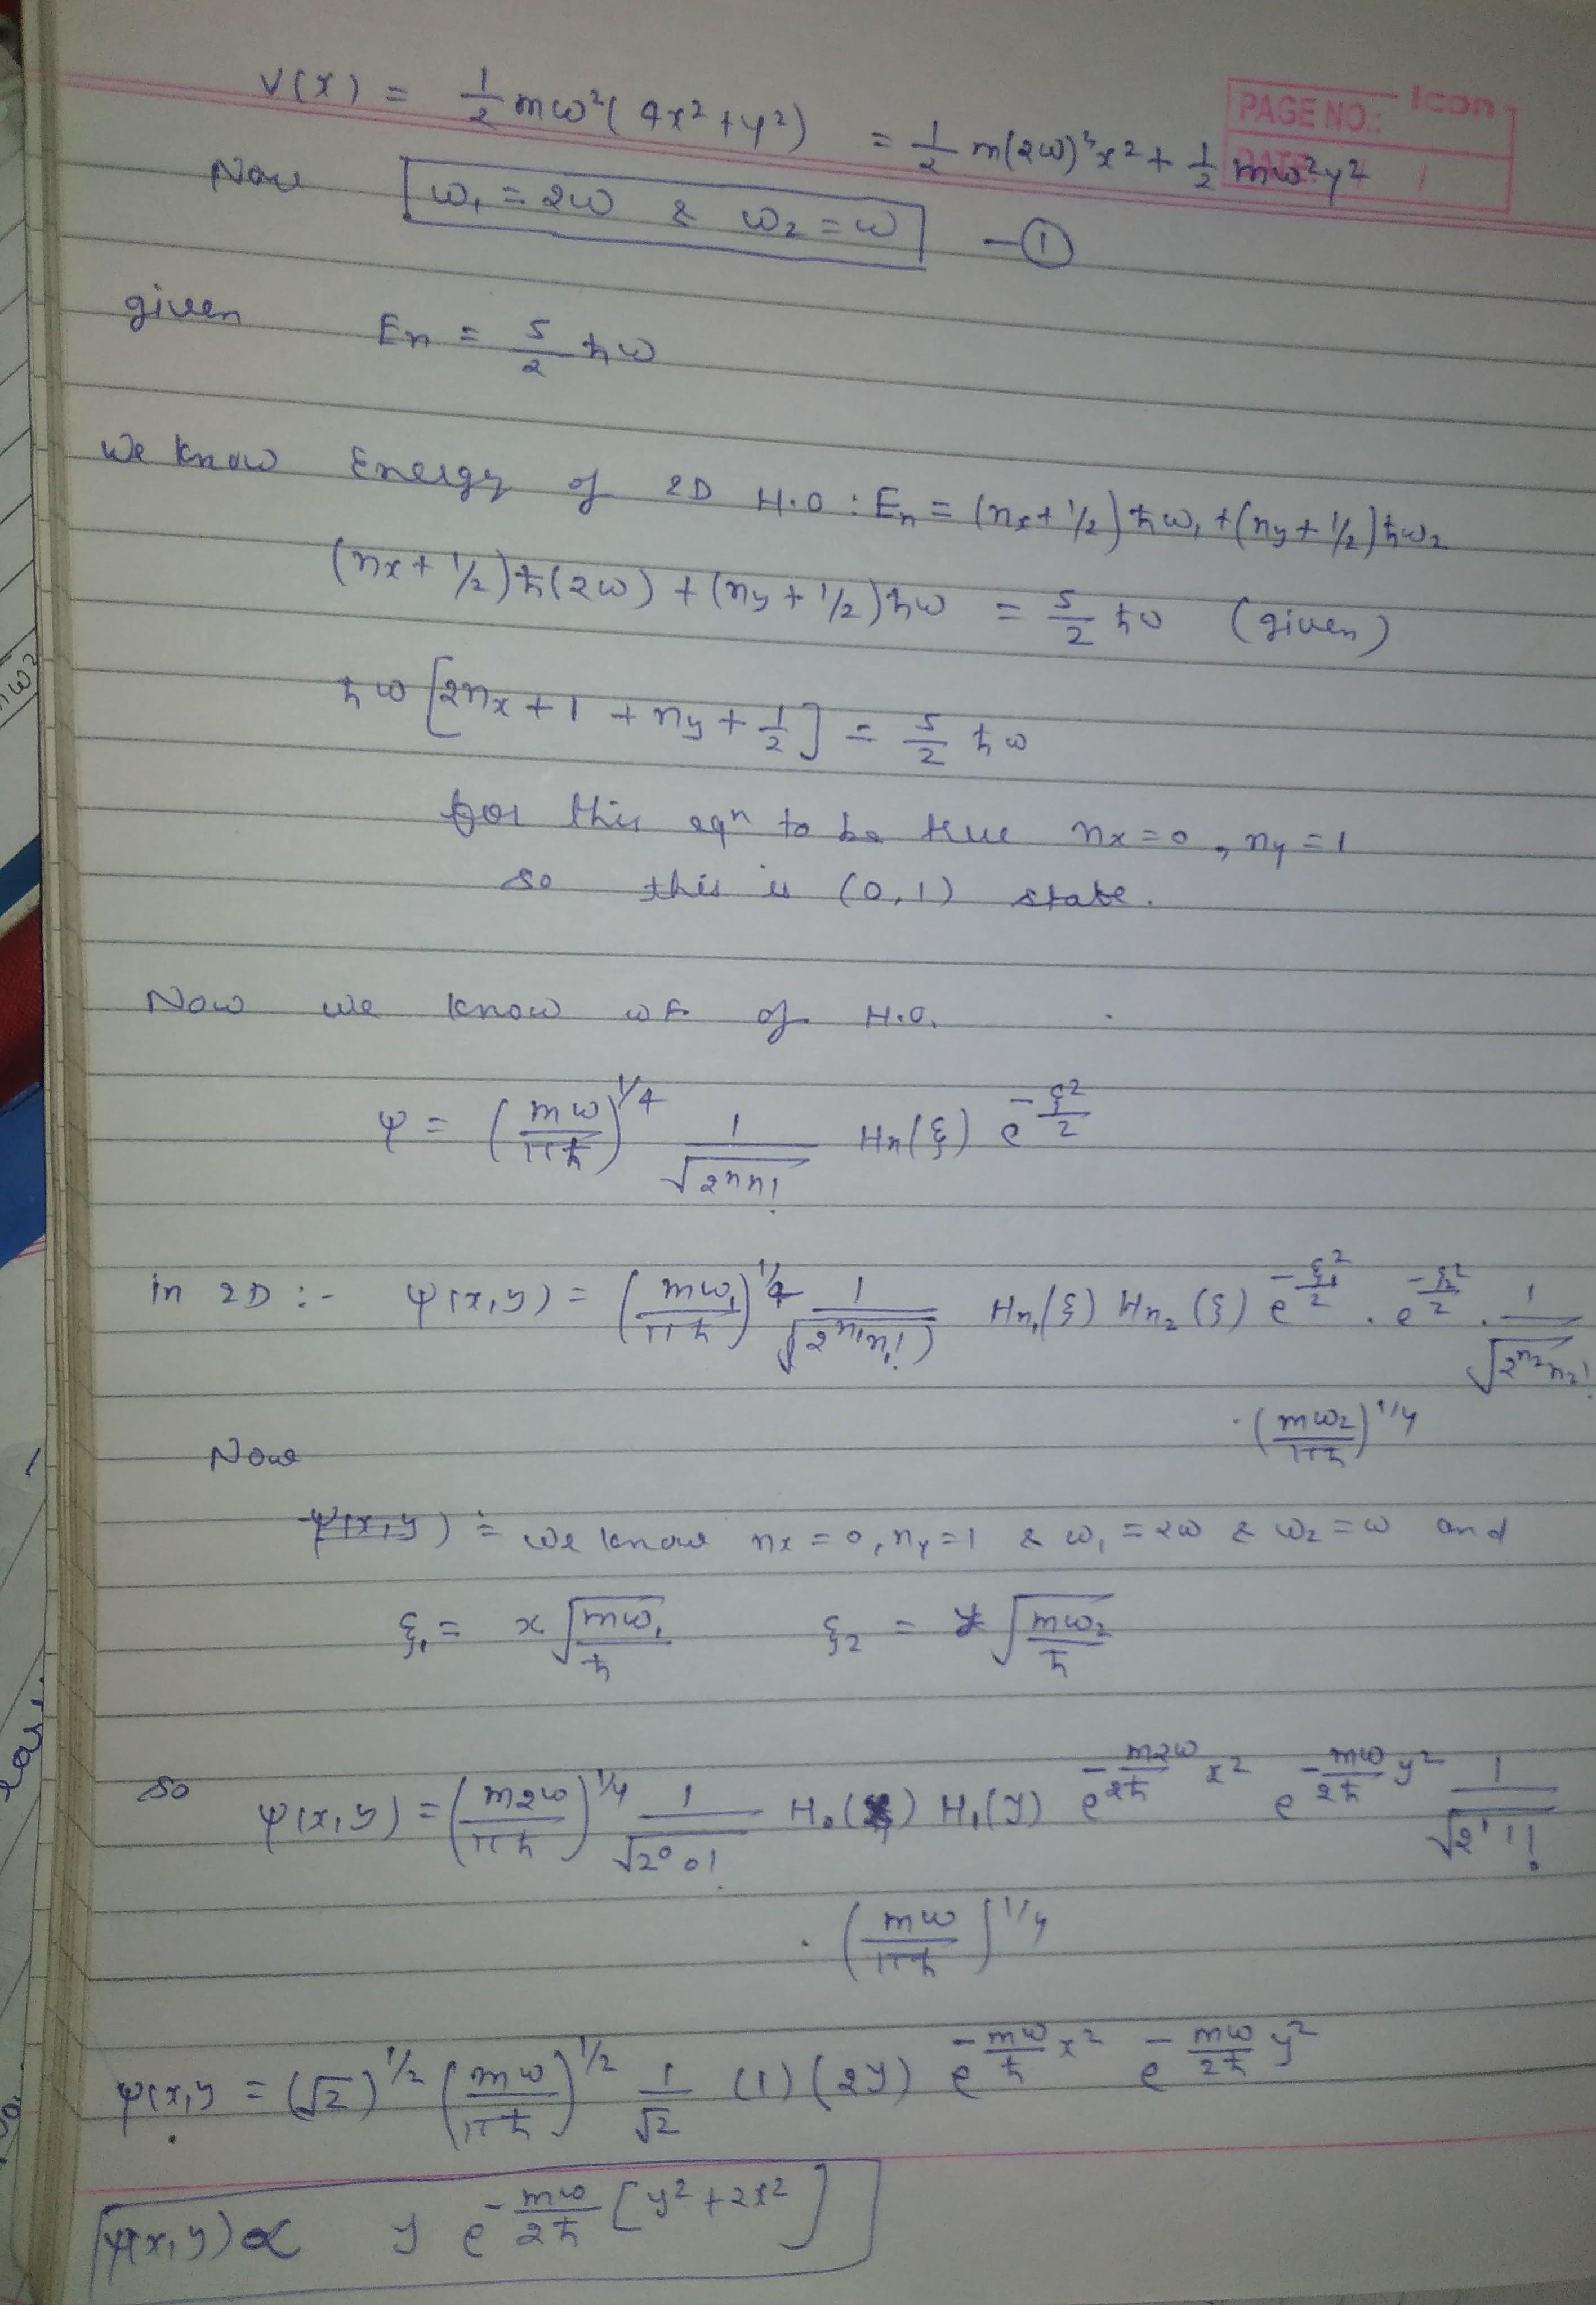 PAGE NO.: Icon
DATE: / /
V(x) = 1/2 mω²(4x² + y²) = 1/2 m(2ω)²x² + 1/2 mω²y²
Now ω₁ = 2ω & ω₂ = ω —①
given En = 5/2 ħω
We know Energy of 2D H.O : En = (nx + 1/2)ħω₁ + (ny + 1/2)ħω₂
(nx + 1/2)ħ(2ω) + (ny + 1/2)ħω = 5/2 ħω (given)
ħω [2nx + 1 + ny + 1/2] = 5/2 ħω
for this eqn to be true nx = 0, ny = 1
so this is (0,1) state.
Now we know WF of H.O.
ψ = (mω/πħ)^1/4 1/√(2ⁿn!) Hn(ξ) e^(-ξ²/2)
in 2D :- ψ(x,y) = (mω₁/πħ)^1/4 1/√(2^n₁ n₁!) Hn₁(ξ) Hn₂(ξ) e^(-ξ₁²/2) . e^(-ξ₂²/2) . 1/√(2^n₂ n₂!)
. (mω₂/πħ)^1/4
Now
ψ(x,y) = we know nx = 0, ny = 1 & ω₁ = 2ω & ω₂ = ω and
ξ₁ = x √(mω₁/ħ) ξ₂ = y √(mω₂/ħ)
so ψ(x,y) = (m2ω/πħ)^1/4 1/√(2⁰0!) H₀(x) H₁(y) e^(-m2ω/2ħ x²) e^(-mω/2ħ y²) 1/√(2¹1!)
. (mω/πħ)^1/4
ψ(x,y = (√2)^1/2 (mω/πħ)^1/2 1/√2 (1) (2y) e^(-mω/ħ x²) e^(-mω/2ħ y²)
ψ(x,y) ∝ y e^(-mω/2ħ [y² + 2x²])